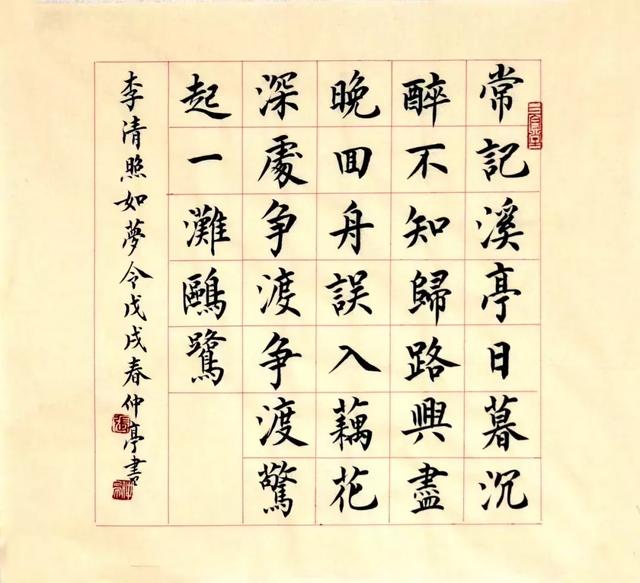 常記溪亭日暮沉
醉不知歸路興盡
晚回舟誤入藕花
深處争渡争渡驚
起一灘鷗鷺
李清照如夢令戊戌春仲亭書